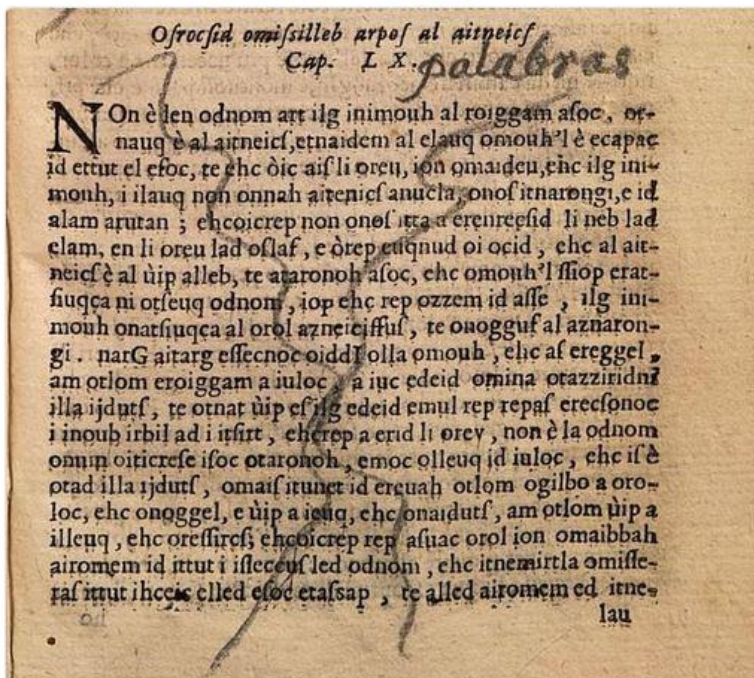 Oſrocſid omiſsilleb arpoſ al aitneicſ
Cap. L X.
palabras
NOn è len odnom art ilg inimouh al roiggam aſoc, or-
nauq è al aitneicſ,etnaidem al elauq omouh'l è ecapac
id ettut el eſoc, te ehc òic aiſ li oreu, ion omaideu,ehc ilg ini-
mouh, i ilauq non onnah aitenicſ anucla, onoſ itnarongi,e id
alam arutan ; ehcoicrep non onoſ itta a erenrecſid li neb lad
elam, en li oreu lad oſlaf, e òrep euqnud oi ocid, ehc al ait-
neicſ è al ùip alleb, te ataronoh aſoc, ehc omouh'l ſſiop erat-
ſiuqca ni otſeuq odnom, iop ehc rep ozzem id aſſe, ilg ini-
mouh onatſiuqca al orol azneiciffuſ, te onogguf al aznaron-
gi. narG aitarg eſſecnoc oiddI olla omouh, ehc aſ ereggel,
am otlom eroiggam a iuloc, a iuc edeid omina otazziridni
illa ijdutſ, te otnat ùip eſ ilg edeid emul rep repaſ erecſonoc
i inoub irbil ad i itſirt, ehcrep a erid li orev, non è la odnom
onum oiticreſe iſoc otaronoh, emoc olleuq id iuloc, ehc iſ è
otad illa ijdutſ, omaiſ itunet id ereuah otlom ogilbo a oro-
loc, ehc onoggel, e ùip a ieuq, ehc onaidutſ, am otlom ùip a
illeuq, ehc oreſſircſ; ehcoicrep rep aſuac orol ion omaibbah
airomem id ittut i iſleccuſ led odnom, ehc itnemirtla omiſſe-
raſ ittut ihceic elled eſoc etaſsap, te alled airomem ed itne-
lau